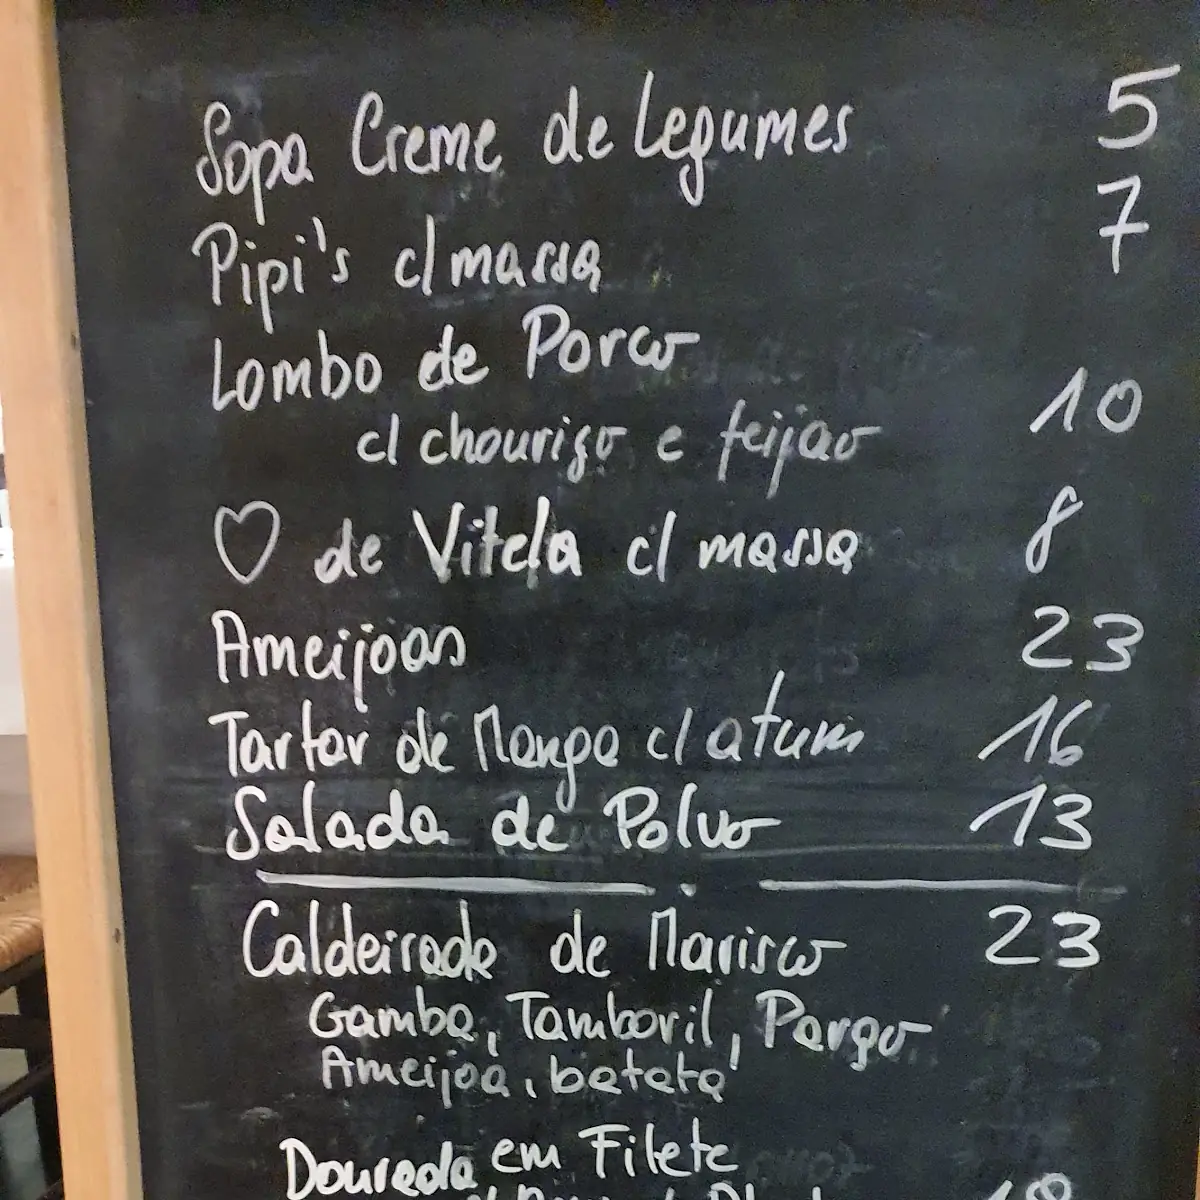 Sopa Creme de Legumes 5
Pipi's c/ massa 7
Lombo de Porco
c/ chouriço e feijao 10
♡ de Vitela c/ massa 8
Ameijoas 23
Tartar de Manga c/ atum 16
Salada de Polvo 13
Caldeirada de Marisco 23
Gamba, Tamboril, Pargo
Ameijoa, batata
Dourada em Filete